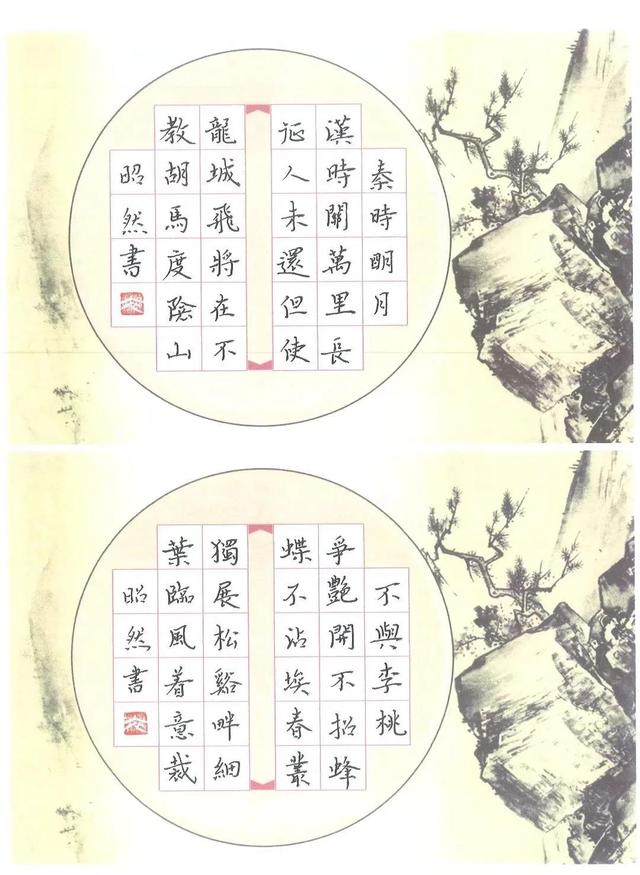 秦時明月
漢時關萬里長
征人未還但使
龍城飛將在不
教胡馬度陰山
昭然書
不與李桃
爭艷開不招蜂
蝶不沾埃春叢
獨展松谿畔細
葉臨風着意裁
昭然書